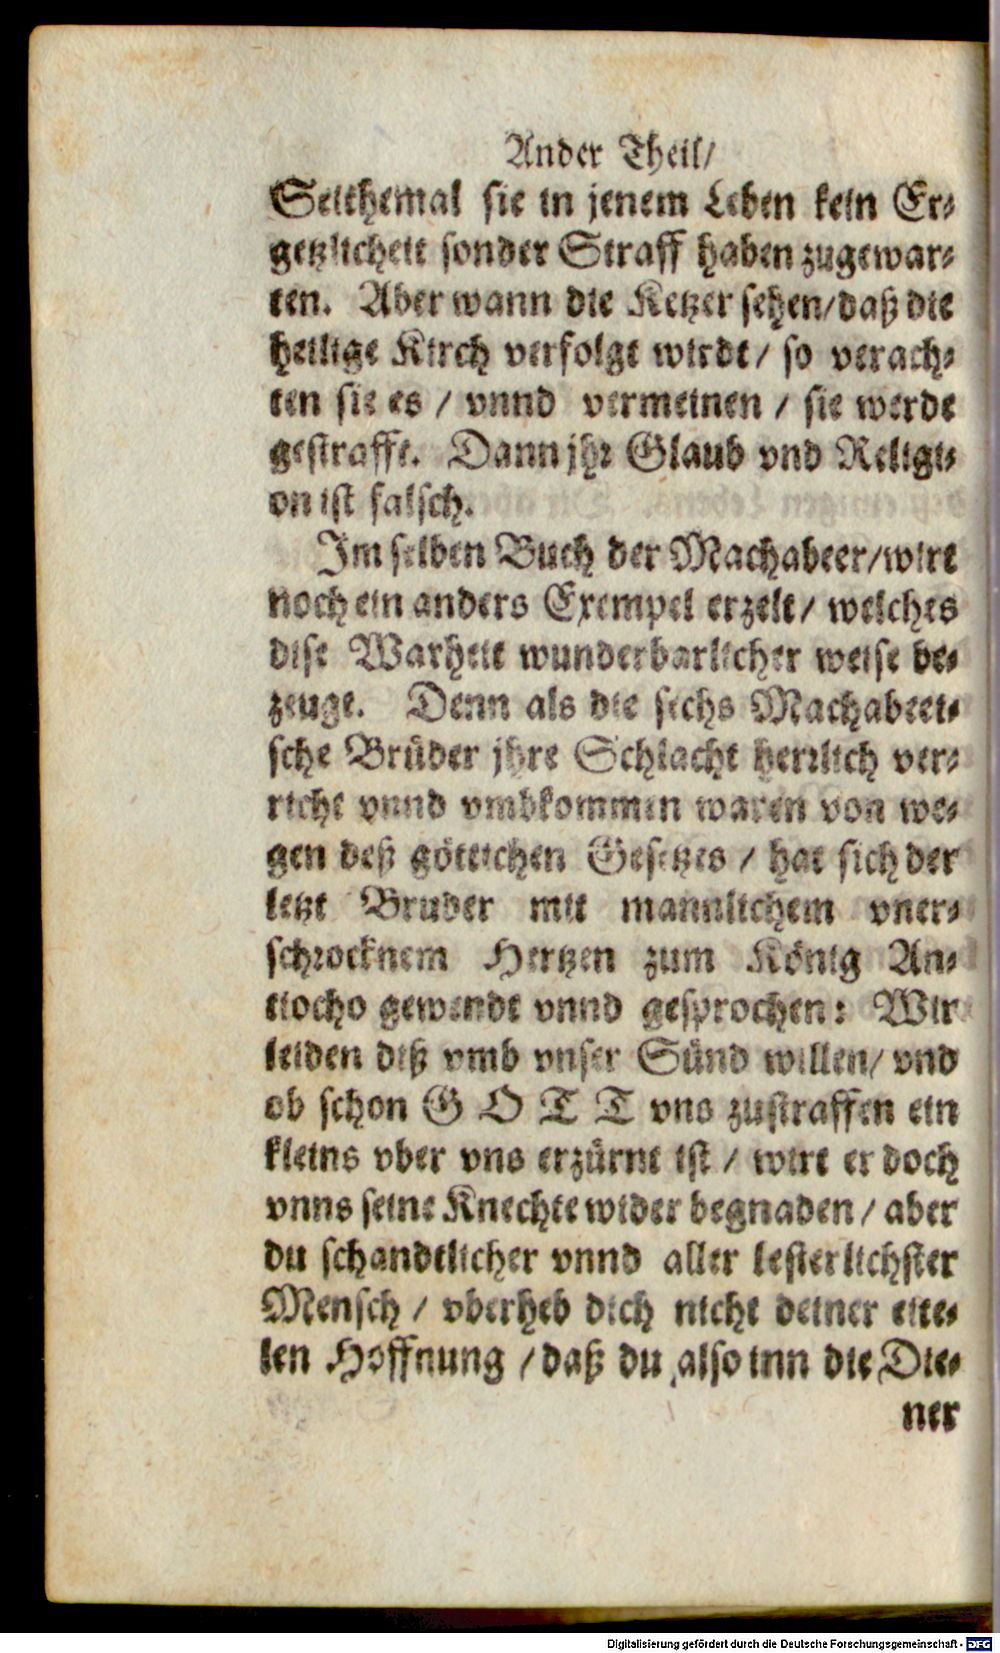 Ander Theil/
Seithemal sie in jenem Leben kein Er-
getzlicheit sonder Straff haben zugewar-
ten. Aber wann die Ketzer sehen/daß die
heilige Kirch verfolgt wirdt/ so verach-
ten sie es / vnnd vermeinen / sie werde
gestrafft. Dann jhr Glaub vnd Religi-
on ist falsch.
Im selben Buch der Machabeer/wirt
noch ein anders Exempel erzelt/ welches
dise Warheit wunderbarlicher weise be-
zeuge. Denn als die sechs Machabeei-
sche Brüder jhre Schlacht herrlich ver-
richt vnnd vmbkommen waren von we-
gen deß göttlchen Gesetzes / hat sich der
letzt Bruder mit mannlichem vner-
schrocknem Hertzen zum König An-
tiocho gewendt vnnd gesprochen: Wir
leiden diß vmb vnser Sünd willen/ vnd
ob schon GOTT vns zustraffen ein
kleins vber vns erzürnt ist / wirt er doch
vnns seine Knechte wider begnaden/ aber
du schandtlicher vnnd aller lesterlichster
Mensch / vberheb dich nicht deiner eite-
len Hoffnung /daß du also inn die Die-
ner
Digitalisierung gefördert durch die Deutsche Forschungsgemeinschaft - DFG